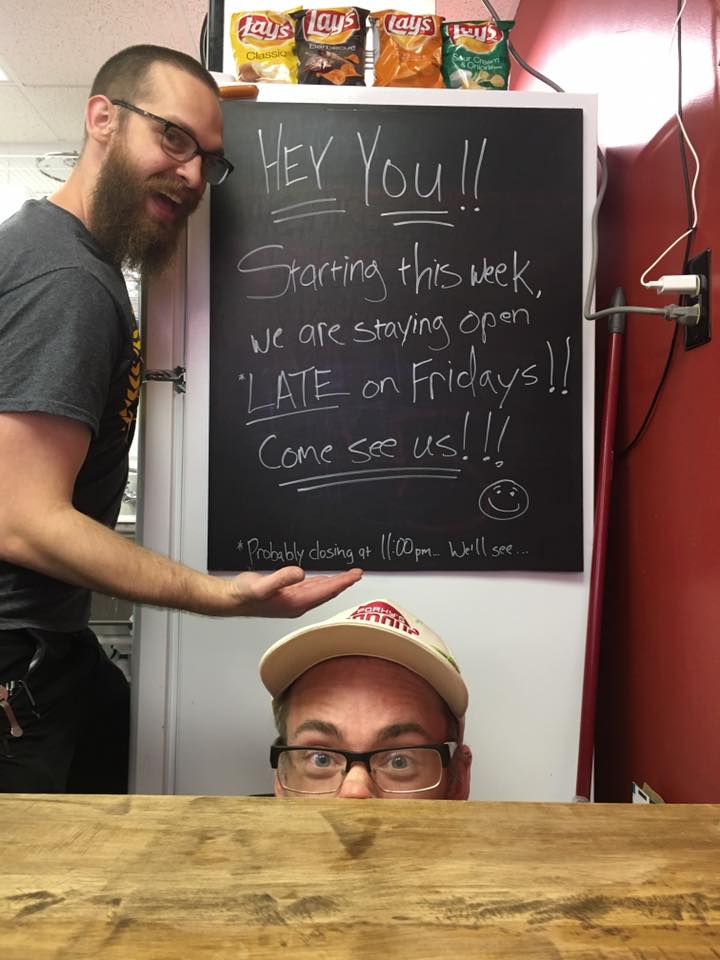 Lay's Lay's Lay's Lay's
Classic Barbecue Sour Cream
& Onion
HEY YOU!!
Starting this week,
we are staying open
*LATE on Fridays!!
Come see us!!!
*Probably closing at 11:00pm... We'll see...